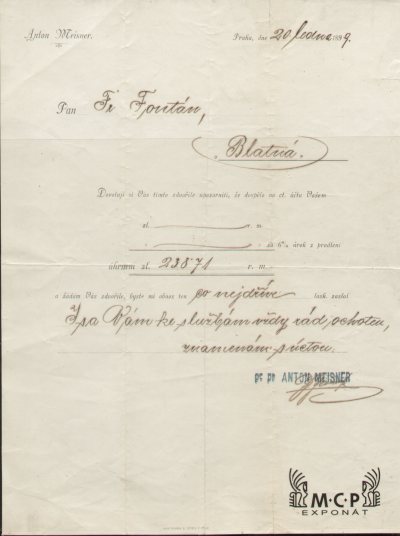 Anton Meisner.
Praha, dne 20 ledna 1899.
Pan Fr Fontán,
Blatná.
Dovoluji si Vás tímto zdvořile upozorniti, že dospělo na ct. účtu Vašem
zl. r. m.
za 6% úrok z prodlení
úhrnem zl. 238 71 r. m.
a žádám Vás zdvořile, byste mi obnos ten co nejdříve lask. zaslal
Jsa Vám ke službám vždy rád ochoten,
znamenám s úctou.
pr. pr. ANTON MEISNER
M·C·P
EXPONÁT